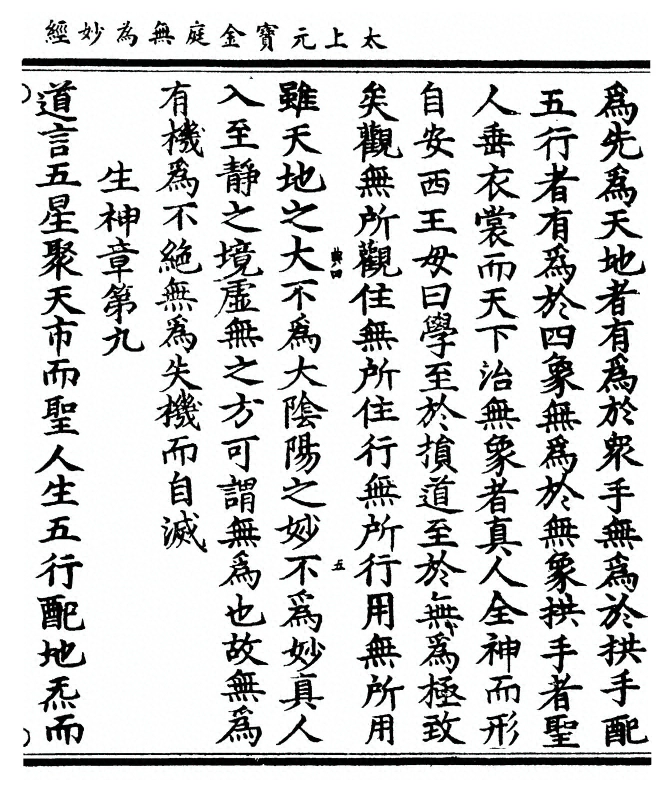 太上元寶金庭無為妙經
爲先爲天地者有爲於衆手無爲於拱手配
五行者有爲於四象無爲於無象拱手者聖
人垂衣裳而天下治無象者真人全神而形
自安西王母曰學至於損道至於無爲極致
矣觀無所觀住無所住行無所行用無所用
雖天地之大不爲大陰陽之妙不爲妙真人
入至靜之境虛無之方可謂無爲也故無爲
有機爲不絶無爲失機而自滅
生神章第九
道言五星聚天市而聖人生五行配地炁而